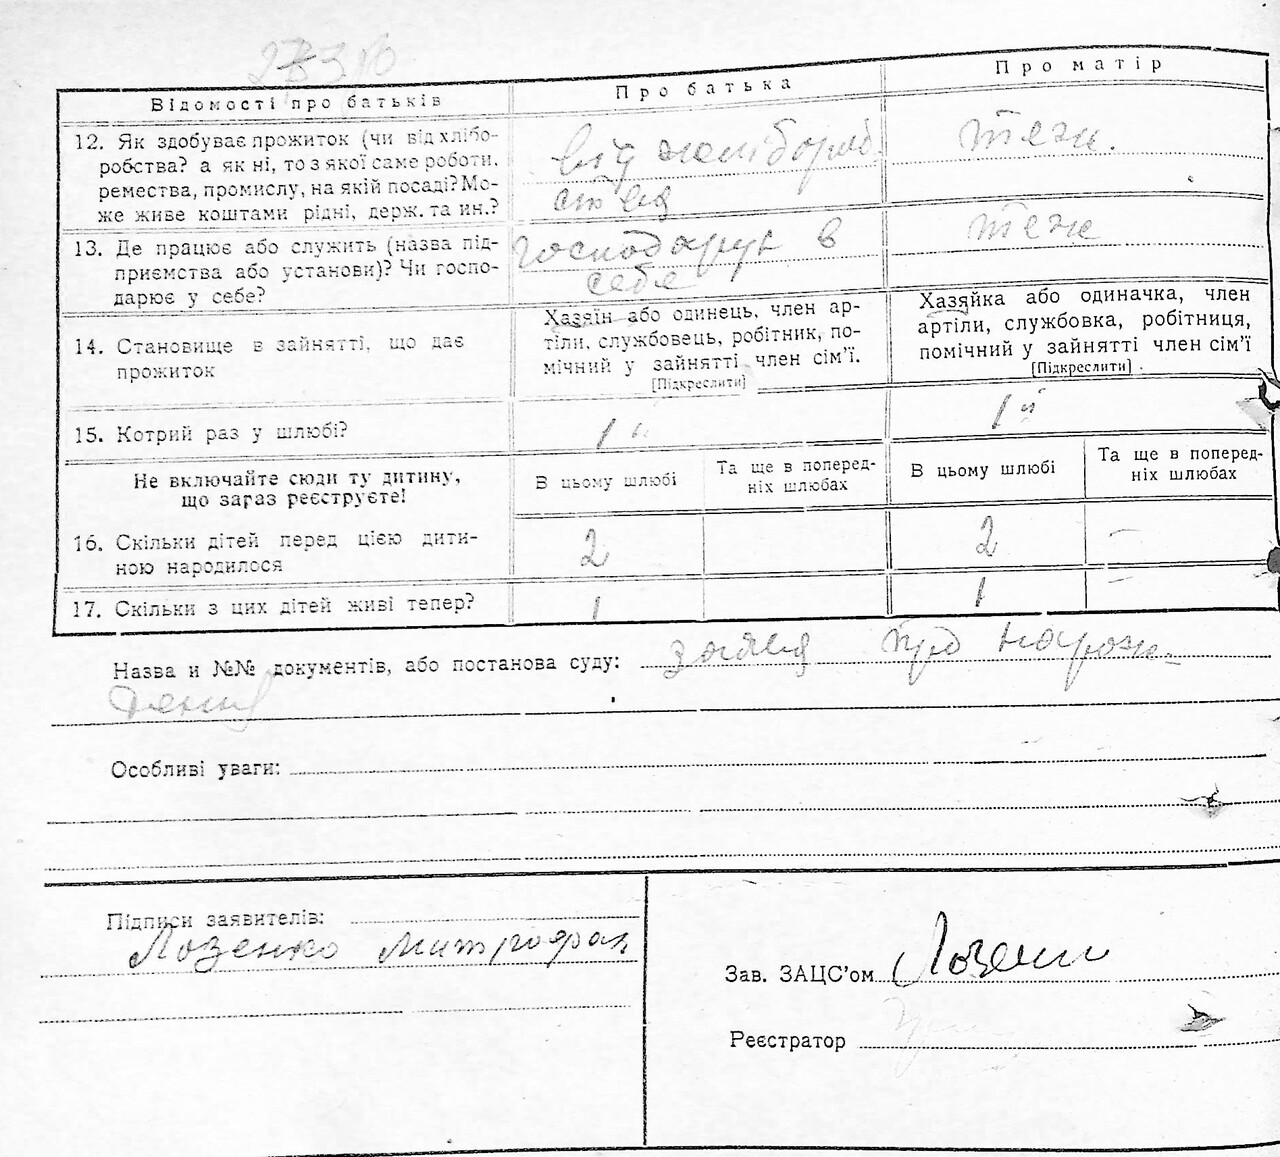 Відомості про батьків
Про батька
Про матір
12. Як здобуває прожиток (чи від хлібо-
робства? а як ні, то з якої саме роботи,
ремества, промислу, на якій посаді? Мо-
же живе коштами рідні, держ. та ин.?
від хлібороб
ства
теж.
13. Де працює або служить (назва під-
приємства або установи)? Чи госпо-
дарює у себе?
господарує в
себе
теж
14. Становище в зайнятті, що дає
прожиток
Хазяїн або одинець, член ар-
тіли, службовець, робітник, по-
мічний у зайнятті член сім'ї.
[Підкреслити]
Хазяйка або одиначка, член
артіли, службовка, робітниця,
помічний у зайнятті член сім'ї
[Підкреслити]
15. Котрий раз у шлюбі?
1й
1й
Не включайте сюди ту дитину,
що зараз реєструєте!
В цьому шлюбі
Та ще в поперед-
ніх шлюбах
В цьому шлюбі
Та ще в поперед-
ніх шлюбах
16. Скільки дітей перед цією дити-
ною народилося
2
2
—
17. Скільки з цих дітей живі тепер?
1
1
—
Назва и №№ документів, або постанова суду: заява про народж-
дення
Особливі уваги:
Підписи заявителів:
Лозенко Митрофан
Зав. ЗАЦС'ом
Реєстратор